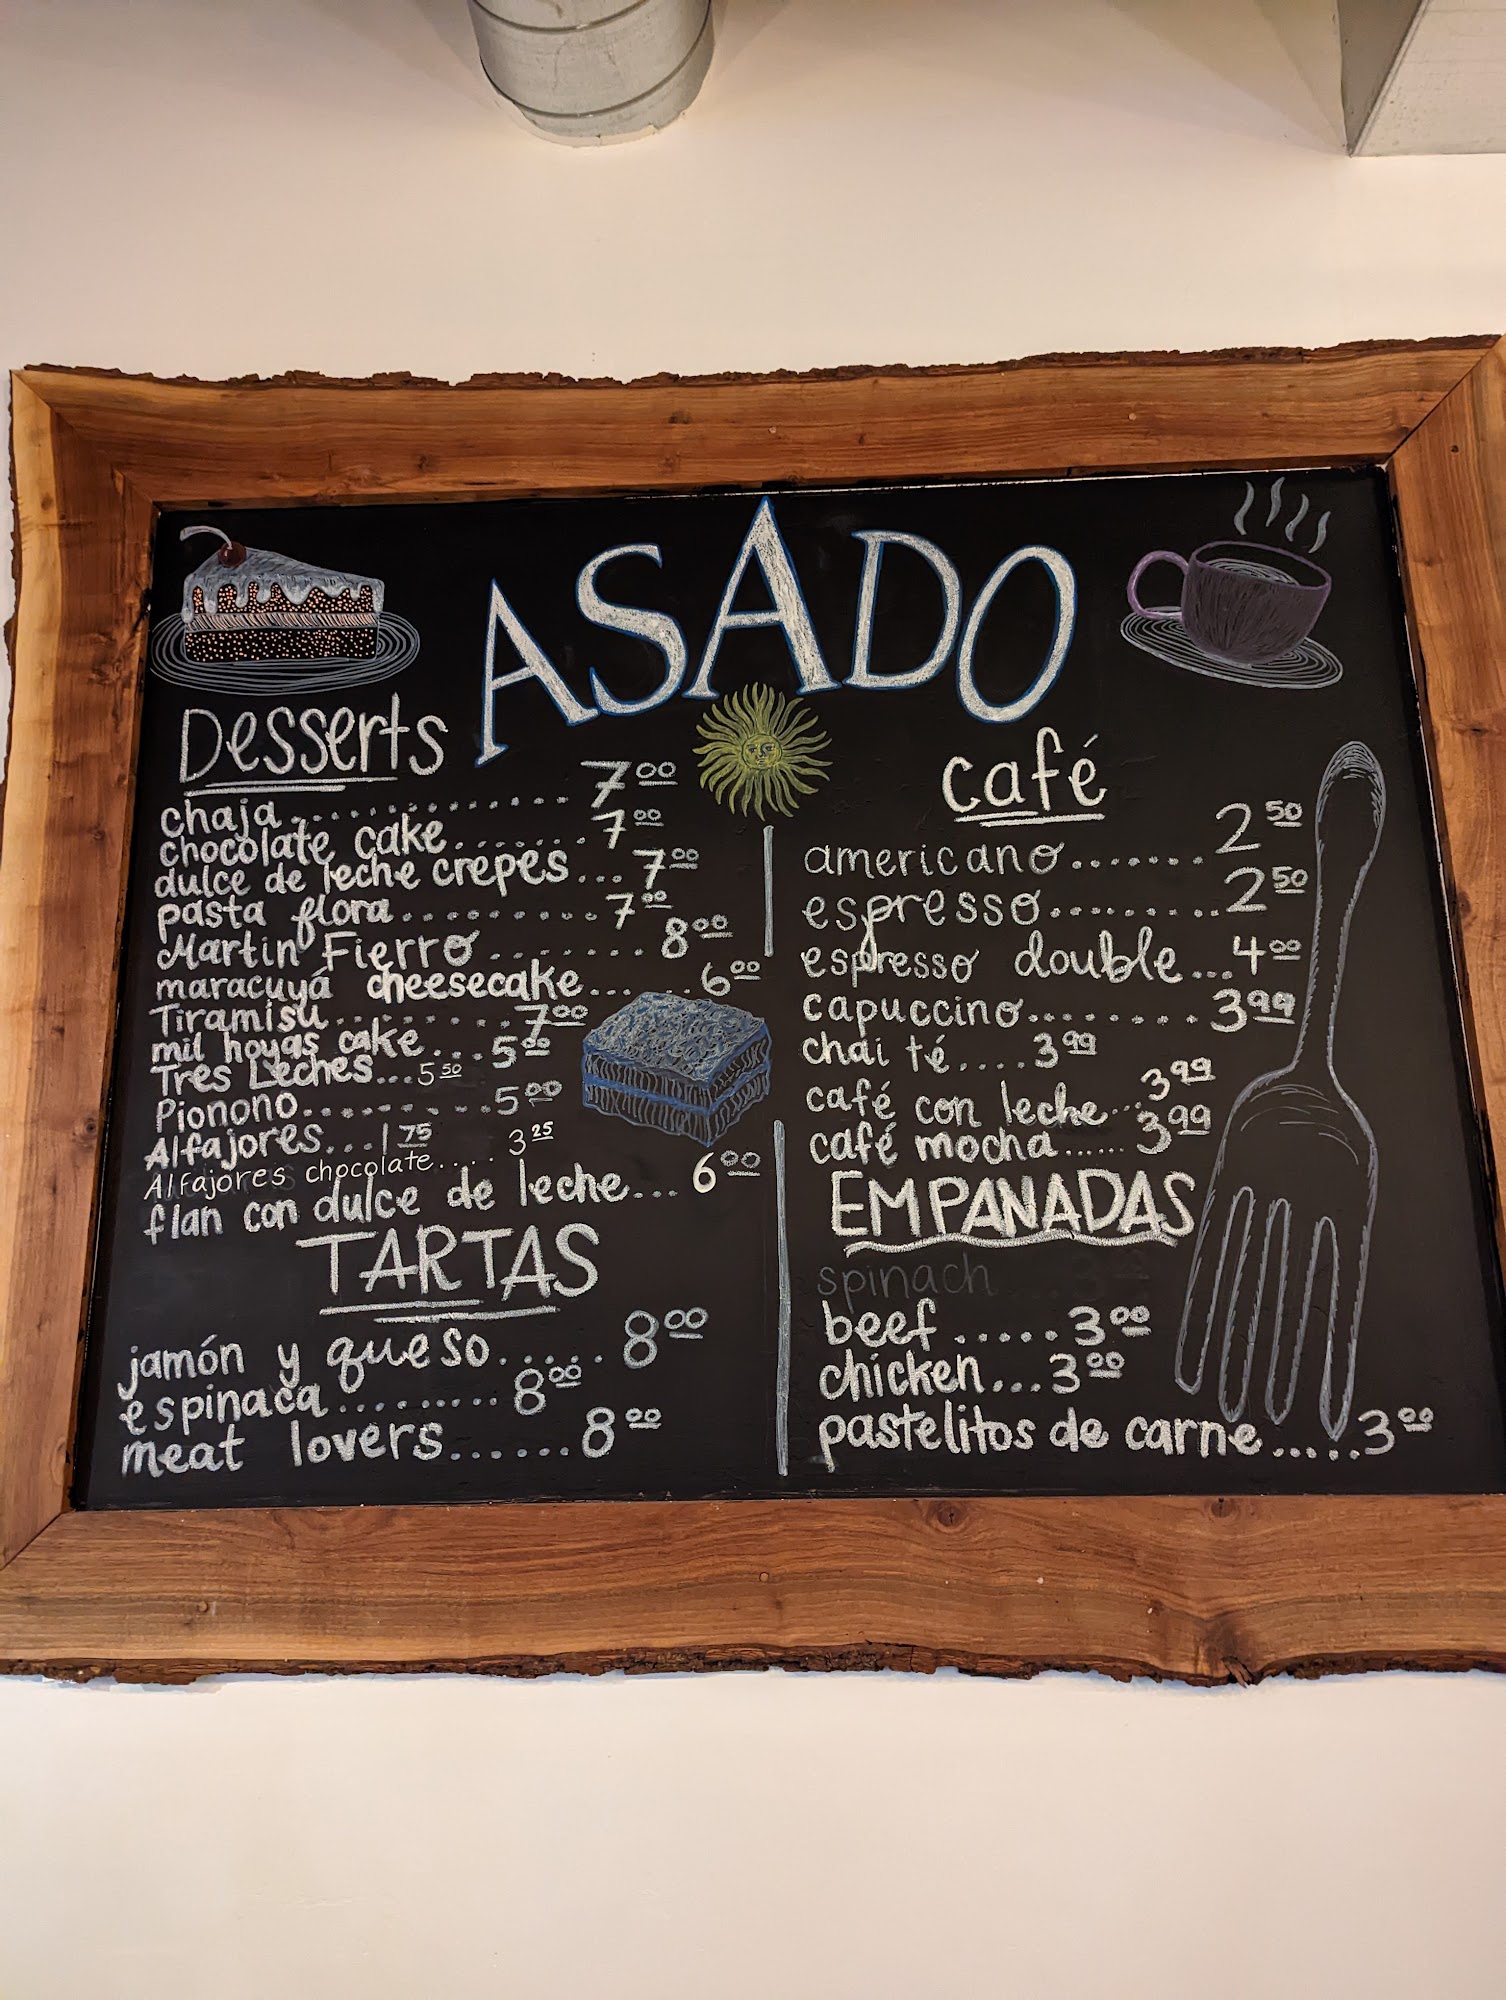 ASADO
Desserts
chaja............. 7 00
chocolate cake....... 7 00
dulce de leche crepes... 7 00
pasta flora........... 7 00
Martin Fierro........ 8 00
maracuyá cheesecake...... 6 00
Tiramisu......... 7 00
mil hoyas cake... 5 00
Tres Leches... 5 50
Pionono.......... 5 00
Alfajores... 1 75
Alfajores chocolate..... 3 25
flan con dulce de leche... 6 00
TARTAS
jamón y queso...... 8 00
espinaca......... 8 00
meat lovers...... 8 00
café
americano....... 2 50
espresso......... 2 50
espresso double... 4 00
capuccino......... 3 99
chai té.... 3 99
café con leche... 3 99
café mocha...... 3 99
EMPANADAS
spinach
beef ..... 3 00
chicken... 3 00
pastelitos de carne..... 3 00